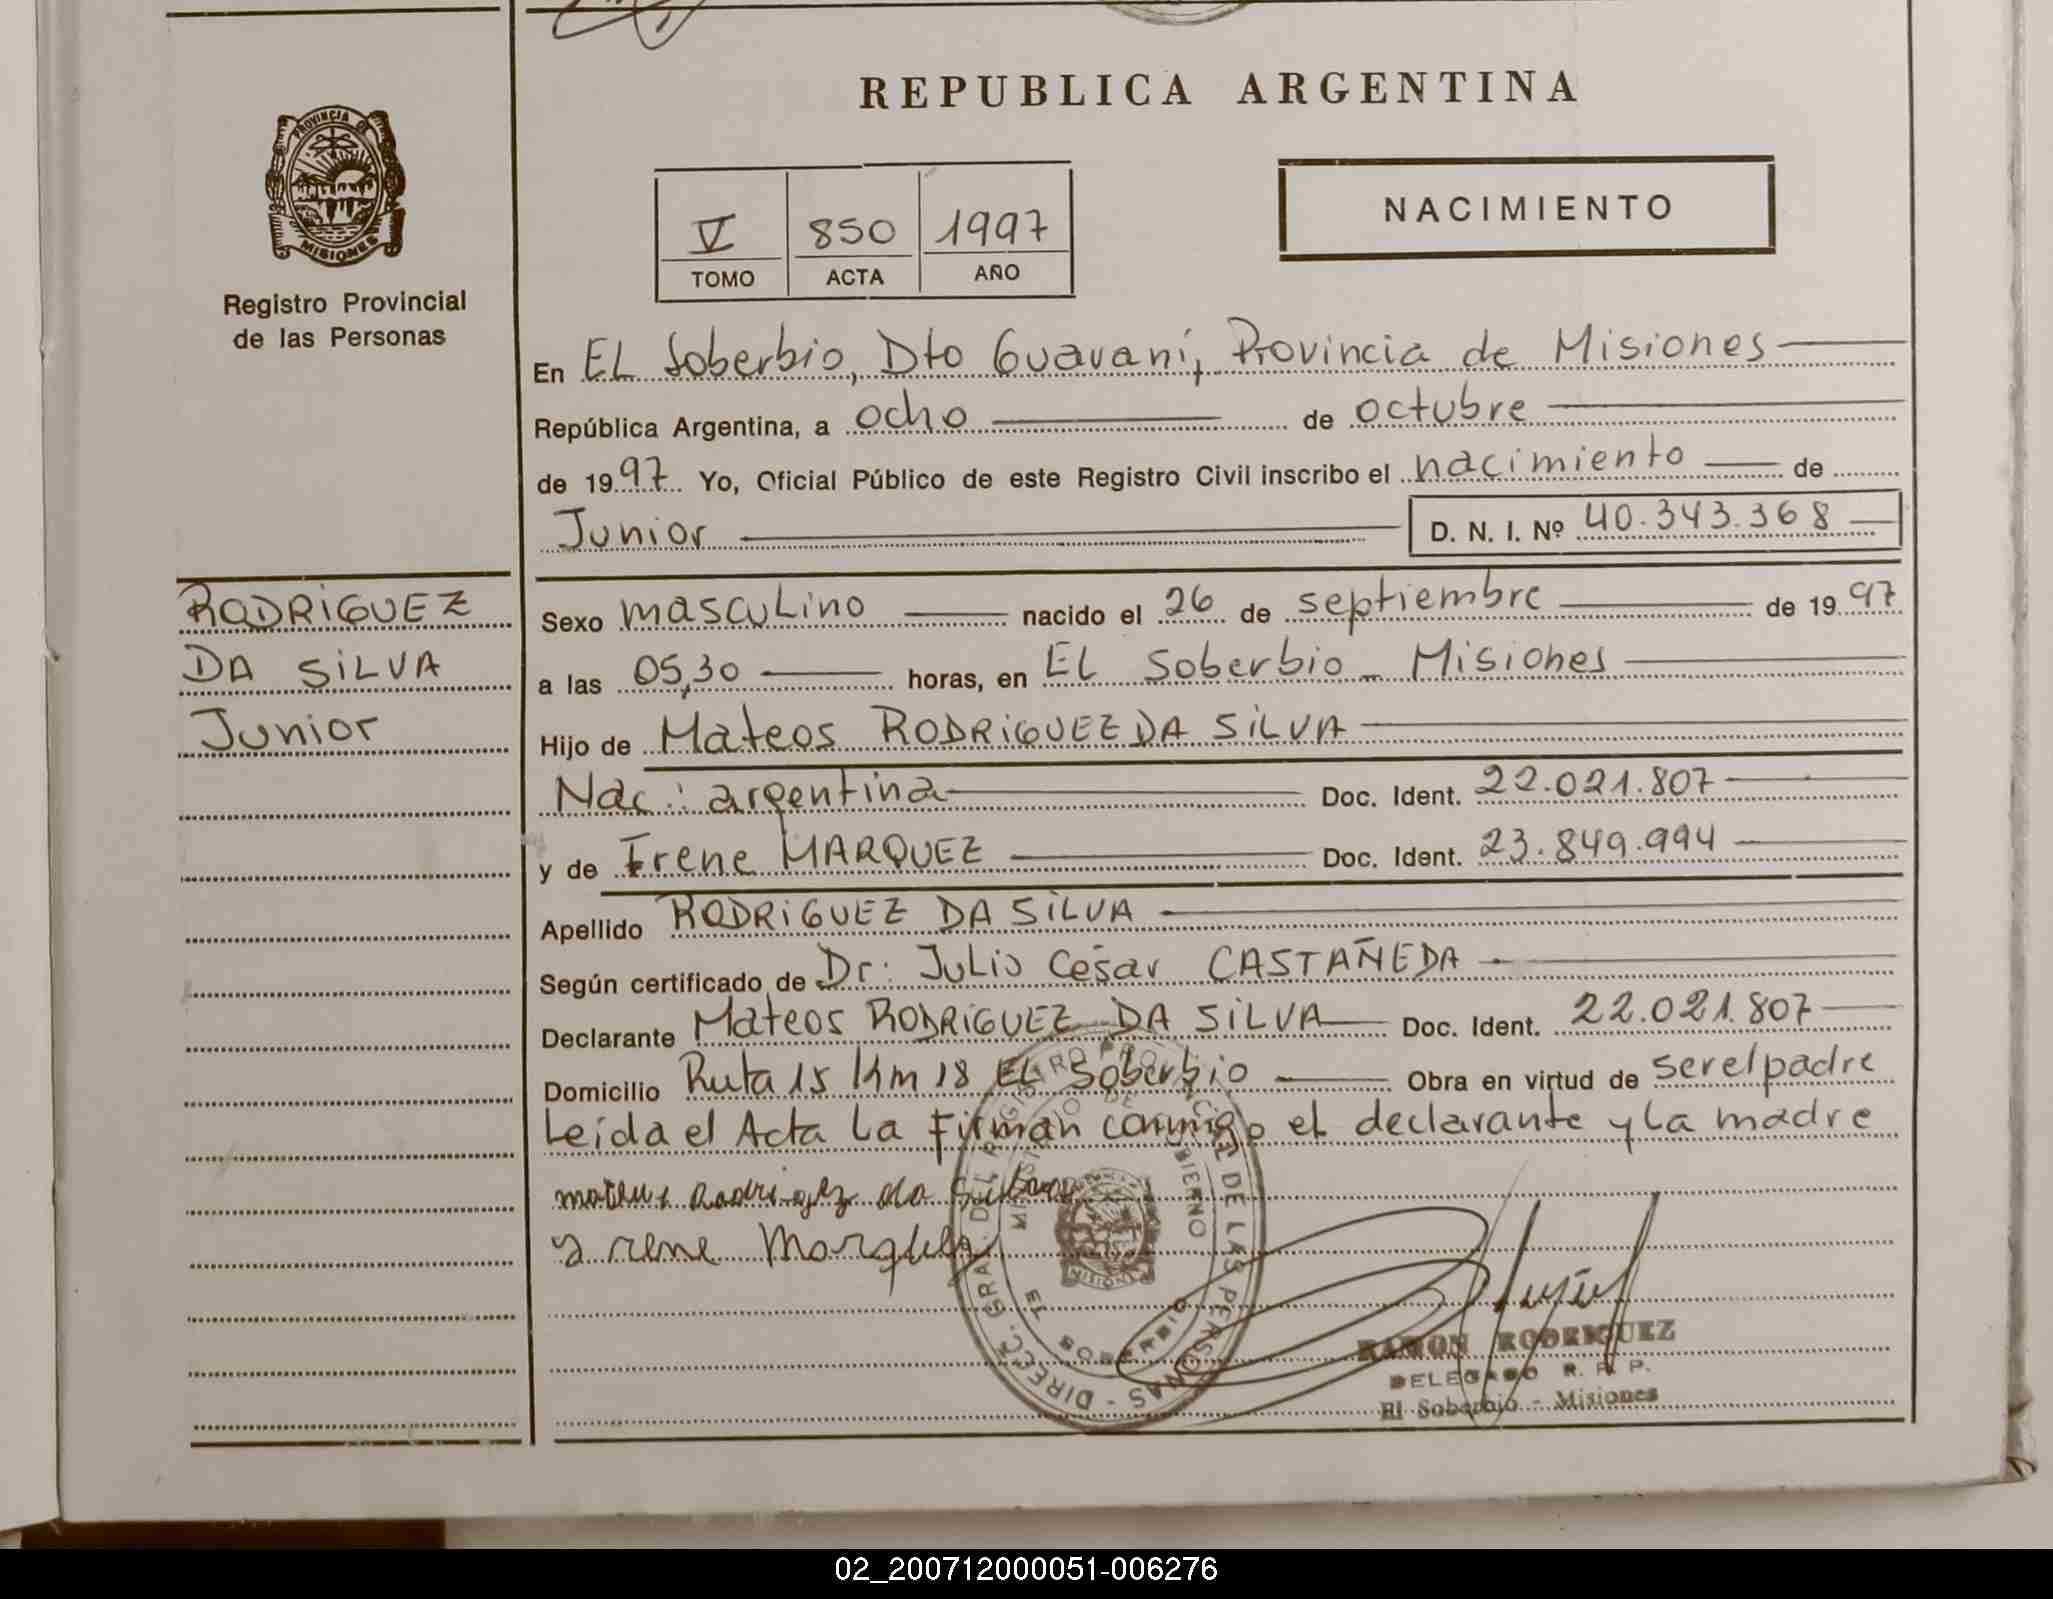 REPUBLICA ARGENTINA
PROVINCIA DE
MISIONES
Registro Provincial
de las Personas
V 850 1997
TOMO ACTA AÑO
NACIMIENTO
En EL Soberbio, Dto Guaraní, Provincia de Misiones
República Argentina, a ocho de octubre
de 1997 Yo, Oficial Público de este Registro Civil inscribo el nacimiento de
Junior D. N. I. Nº 40.343.368
RODRIGUEZ
DA SILVA
Junior
Sexo mascuLino nacido el 26 de septiembre de 1997
a las 05,30 horas, en EL Soberbio - Misiones
Hijo de Mateos RODRIGUEZ DA SILVA
Nac: argentina Doc. Ident. 22.021.807
y de Irene MARQUEZ Doc. Ident. 23.849.994
Apellido RODRIGUEZ DA SILVA
Según certificado de Dr: JuLio César CASTAÑEDA
Declarante Mateos RODRIGUEZ DA SILVA Doc. Ident. 22.021.807
Domicilio Ruta 15 Km 18 EL Soberbio Obra en virtud de ser el padre
Leída el Acta La Firman conmigo el declarante y La madre
Rodriguez da Silva
Yrene Marquez
DIRECC. GRAL. DEL REGISTRO PROVINCIAL DE LAS PERSONAS
MISIONES
RAMON RODRIGUEZ
DELEGADO R. P. P.
El Soberbio - Misiones
02_200712000051-006276